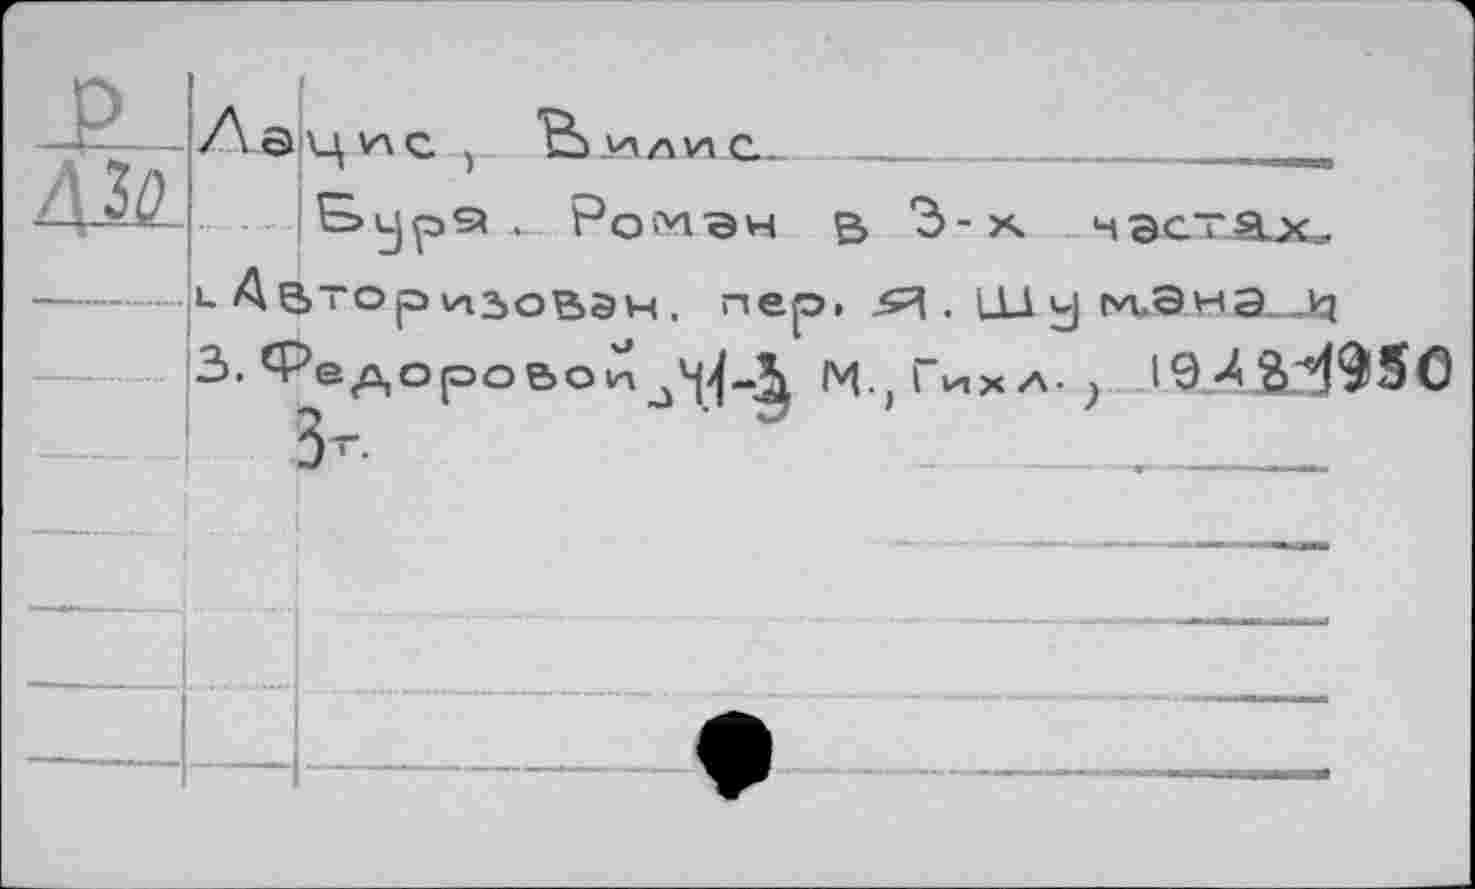 Р
Л30
Лацис, Вилис
Буря. Роман в 3-х частях.
Авторизован. пер. Я. Шумана и
З. Федоровой, Ч1-3 М., Гихл., 1948-1950
3т.